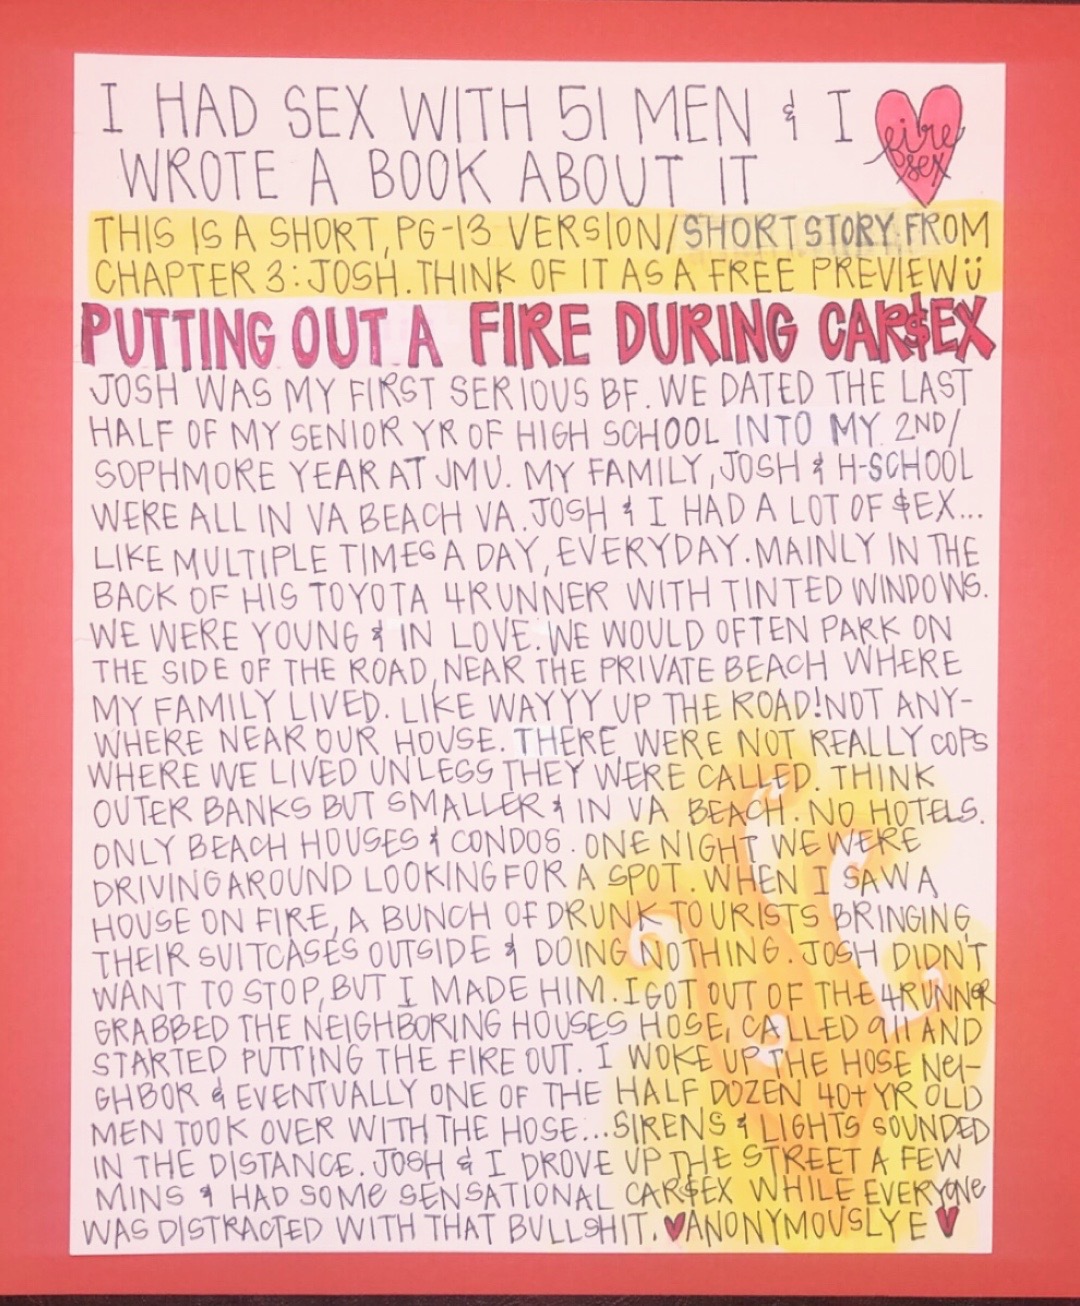 I HAD SEX WITH 51 MEN & I
WROTE A BOOK ABOUT IT
fire
sex
THIS IS A SHORT, PG-13 VERSION/SHORT STORY FROM
CHAPTER 3: JOSH. THINK OF IT AS A FREE PREVIEW Ü
PUTTING OUT A FIRE DURING CAR$EX
JOSH WAS MY FIRST SERIOUS BF. WE DATED THE LAST
HALF OF MY SENIOR YR OF HIGH SCHOOL INTO MY 2ND/
SOPHMORE YEAR AT JMU. MY FAMILY, JOSH & H-SCHOOL
WERE ALL IN VA BEACH VA. JOSH & I HAD A LOT OF $EX...
LIKE MULTIPLE TIMES A DAY, EVERYDAY. MAINLY IN THE
BACK OF HIS TOYOTA 4RUNNER WITH TINTED WINDOWS.
WE WERE YOUNG & IN LOVE. WE WOULD OFTEN PARK ON
THE SIDE OF THE ROAD, NEAR THE PRIVATE BEACH WHERE
MY FAMILY LIVED. LIKE WAYYY UP THE ROAD! NOT ANY-
WHERE NEAR OUR HOUSE. THERE WERE NOT REALLY COPS
WHERE WE LIVED UNLESS THEY WERE CALLED. THINK
OUTER BANKS BUT SMALLER & IN VA BEACH. NO HOTELS.
ONLY BEACH HOUSES & CONDOS. ONE NIGHT WE WERE
DRIVING AROUND LOOKING FOR A SPOT. WHEN I SAW A
HOUSE ON FIRE, A BUNCH OF DRUNK TOURISTS BRINGING
THEIR SUITCASES OUTSIDE & DOING NOTHING. JOSH DIDN'T
WANT TO STOP, BUT I MADE HIM. I GOT OUT OF THE 4RUNNER
GRABBED THE NEIGHBORING HOUSES HOSE, CALLED 911 AND
STARTED PUTTING THE FIRE OUT. I WOKE UP THE HOSE NEI-
GHBOR & EVENTUALLY ONE OF THE HALF DOZEN 40+ YR OLD
MEN TOOK OVER WITH THE HOSE...SIRENS & LIGHTS SOUNDED
IN THE DISTANCE. JOSH & I DROVE UP THE STREET A FEW
MINS & HAD SOME SENSATIONAL CAR$EX WHILE EVERYONE
WAS DISTRACTED WITH THAT BULLSHIT. ♥ANONYMOUSLY E♥